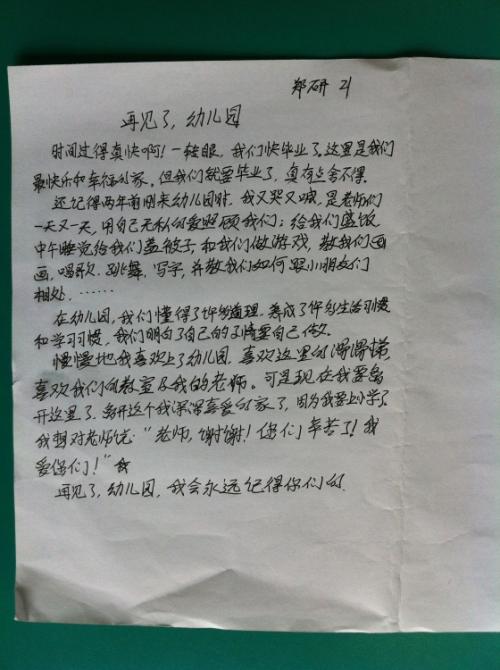 郑研 21
再见了，幼儿园
时间过得真快啊！一转眼，我们快毕业了。这里是我们
最快乐和幸福的家。但我们就要毕业了，真有点舍不得。
还记得两年前刚来幼儿园时，我又哭又喊，是老师们
一天又一天，用自己无私的爱照顾我们；给我们盛饭，
中午睡觉给我们盖被子，和我们做游戏，教我们画
画，唱歌、跳舞、写字，并教我们如何跟小朋友们
相处，……
在幼儿园，我们懂得了许多道理，养成了许多生活习惯
和学习习惯，我们明白了自己的事情要自己做。
慢慢地我喜欢上了幼儿园，喜欢这里的滑滑梯，
喜欢我们的教室及我的老师。可是现在我要离
开这里了，离开这个我深深喜爱的家了，因为我要上小学了。
我想对老师说：“老师，谢谢！你们辛苦了！我
爱你们！”我
再见了，幼儿园，我会永远记得你们的.